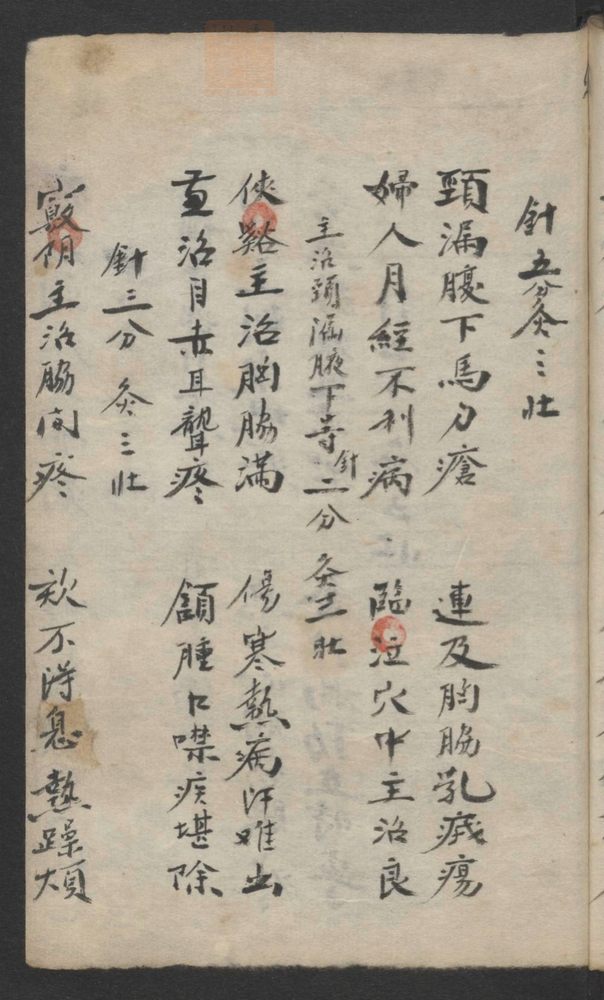 針五分灸三壯
頸漏腹下馬刀瘡 連及胸脇乳癰瘍
婦人月經不利病 臨泣穴中主治良
主治頸漏腋下等針二分灸三壯
俠谿主治胸脇滿 傷寒熱病汗难出
兼治目赤耳聾疼 頷腫口噤疾堪除
針三分灸三壯
竅阴主治脇间疼 欬不得息熱躁煩